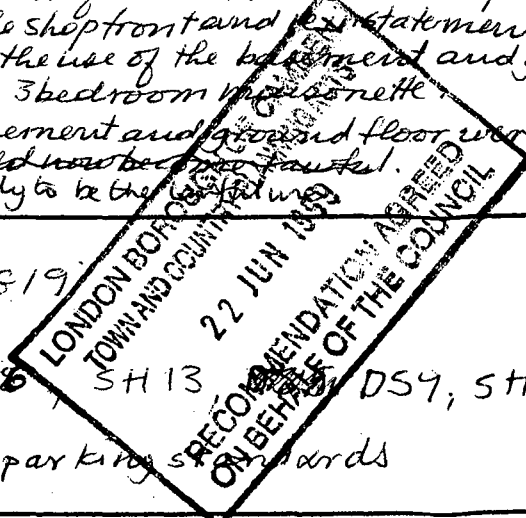 e shopfront and statement
the use of the basement and
3 bedroom maisonette
ement and ground floor wer
ld now
ly to be the lawful use
LONDON BOROUGH OF CAMDEN
TOWN AND COUNTRY PLANNING ACTS
22 JUN 19
RECOMMENDATION AGREED
ON BEHALF OF THE COUNCIL
G19
SH13 DS9, SH
parking standards